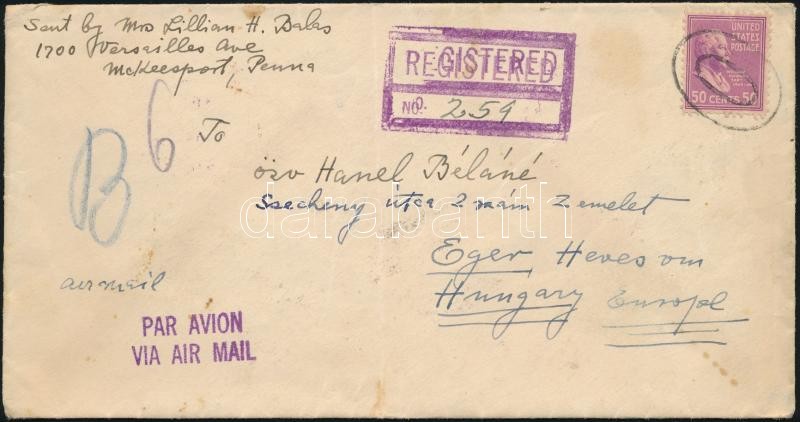 Sent by Mrs Lillian H. Balas
1700 Versailles Ave
McKeesport, Penna
REGISTERED
GISTERED
No. 259
UNITED
STATES
POSTAGE
50 CENTS 50
B
6
To
özv Hanel Béláné
Szecheny útca 2 szám 2 emelet
Eger Heves vm
Hungary Europe
air mail
PAR AVION
VIA AIR MAIL
darabanth